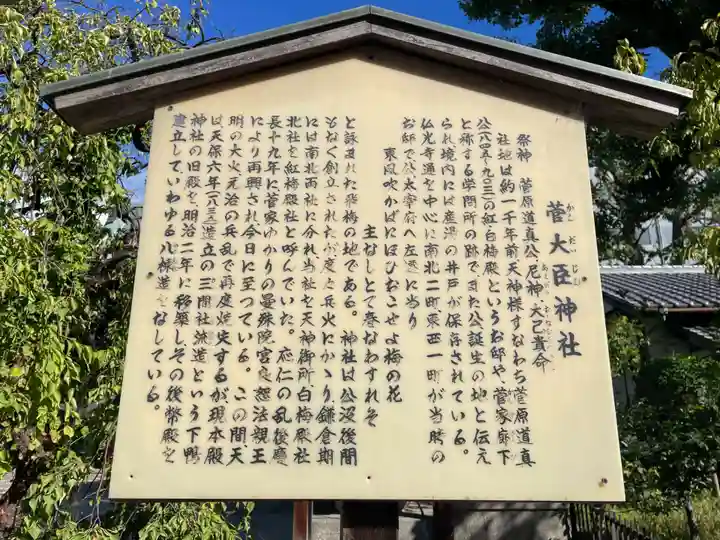 菅大臣神社
かんだいじん
祭神 菅原道真公、尼神、大己貴命
社地は約一千年前天神様すなわち菅原道真
公(八四五〜九〇三)の紅・白梅殿というお邸や、菅家廊下
と称する学問所の跡でまた公誕生の地と伝え
られ境内には産湯の井戸が保存されている。
仏光寺通を中心に南北二町東西一町が当時の
お邸で公太宰府へ左遷に当り
東風吹かばにほひおこせよ梅の花
主なしとて春なわすれそ
と詠まれた飛梅の地である。神社は公没後間
もなく創立されたが度々兵火にかゝり鎌倉期
には南北両社に分れ当社を天神御所、白梅殿社
北社を紅梅殿社と呼んでいた。応仁の乱後慶
長十九年に菅家ゆかりの曼殊院宮良恕法親王
により再興され今日に至っている。この間、天
明の大火元治の兵乱で再度焼失するが、現本殿
は天保六年(一八三五)造立の三間社流造という下鴨
神社の旧殿を、明治二年に移築しその後幣殿を
建立していわゆる八棟造をなしている。